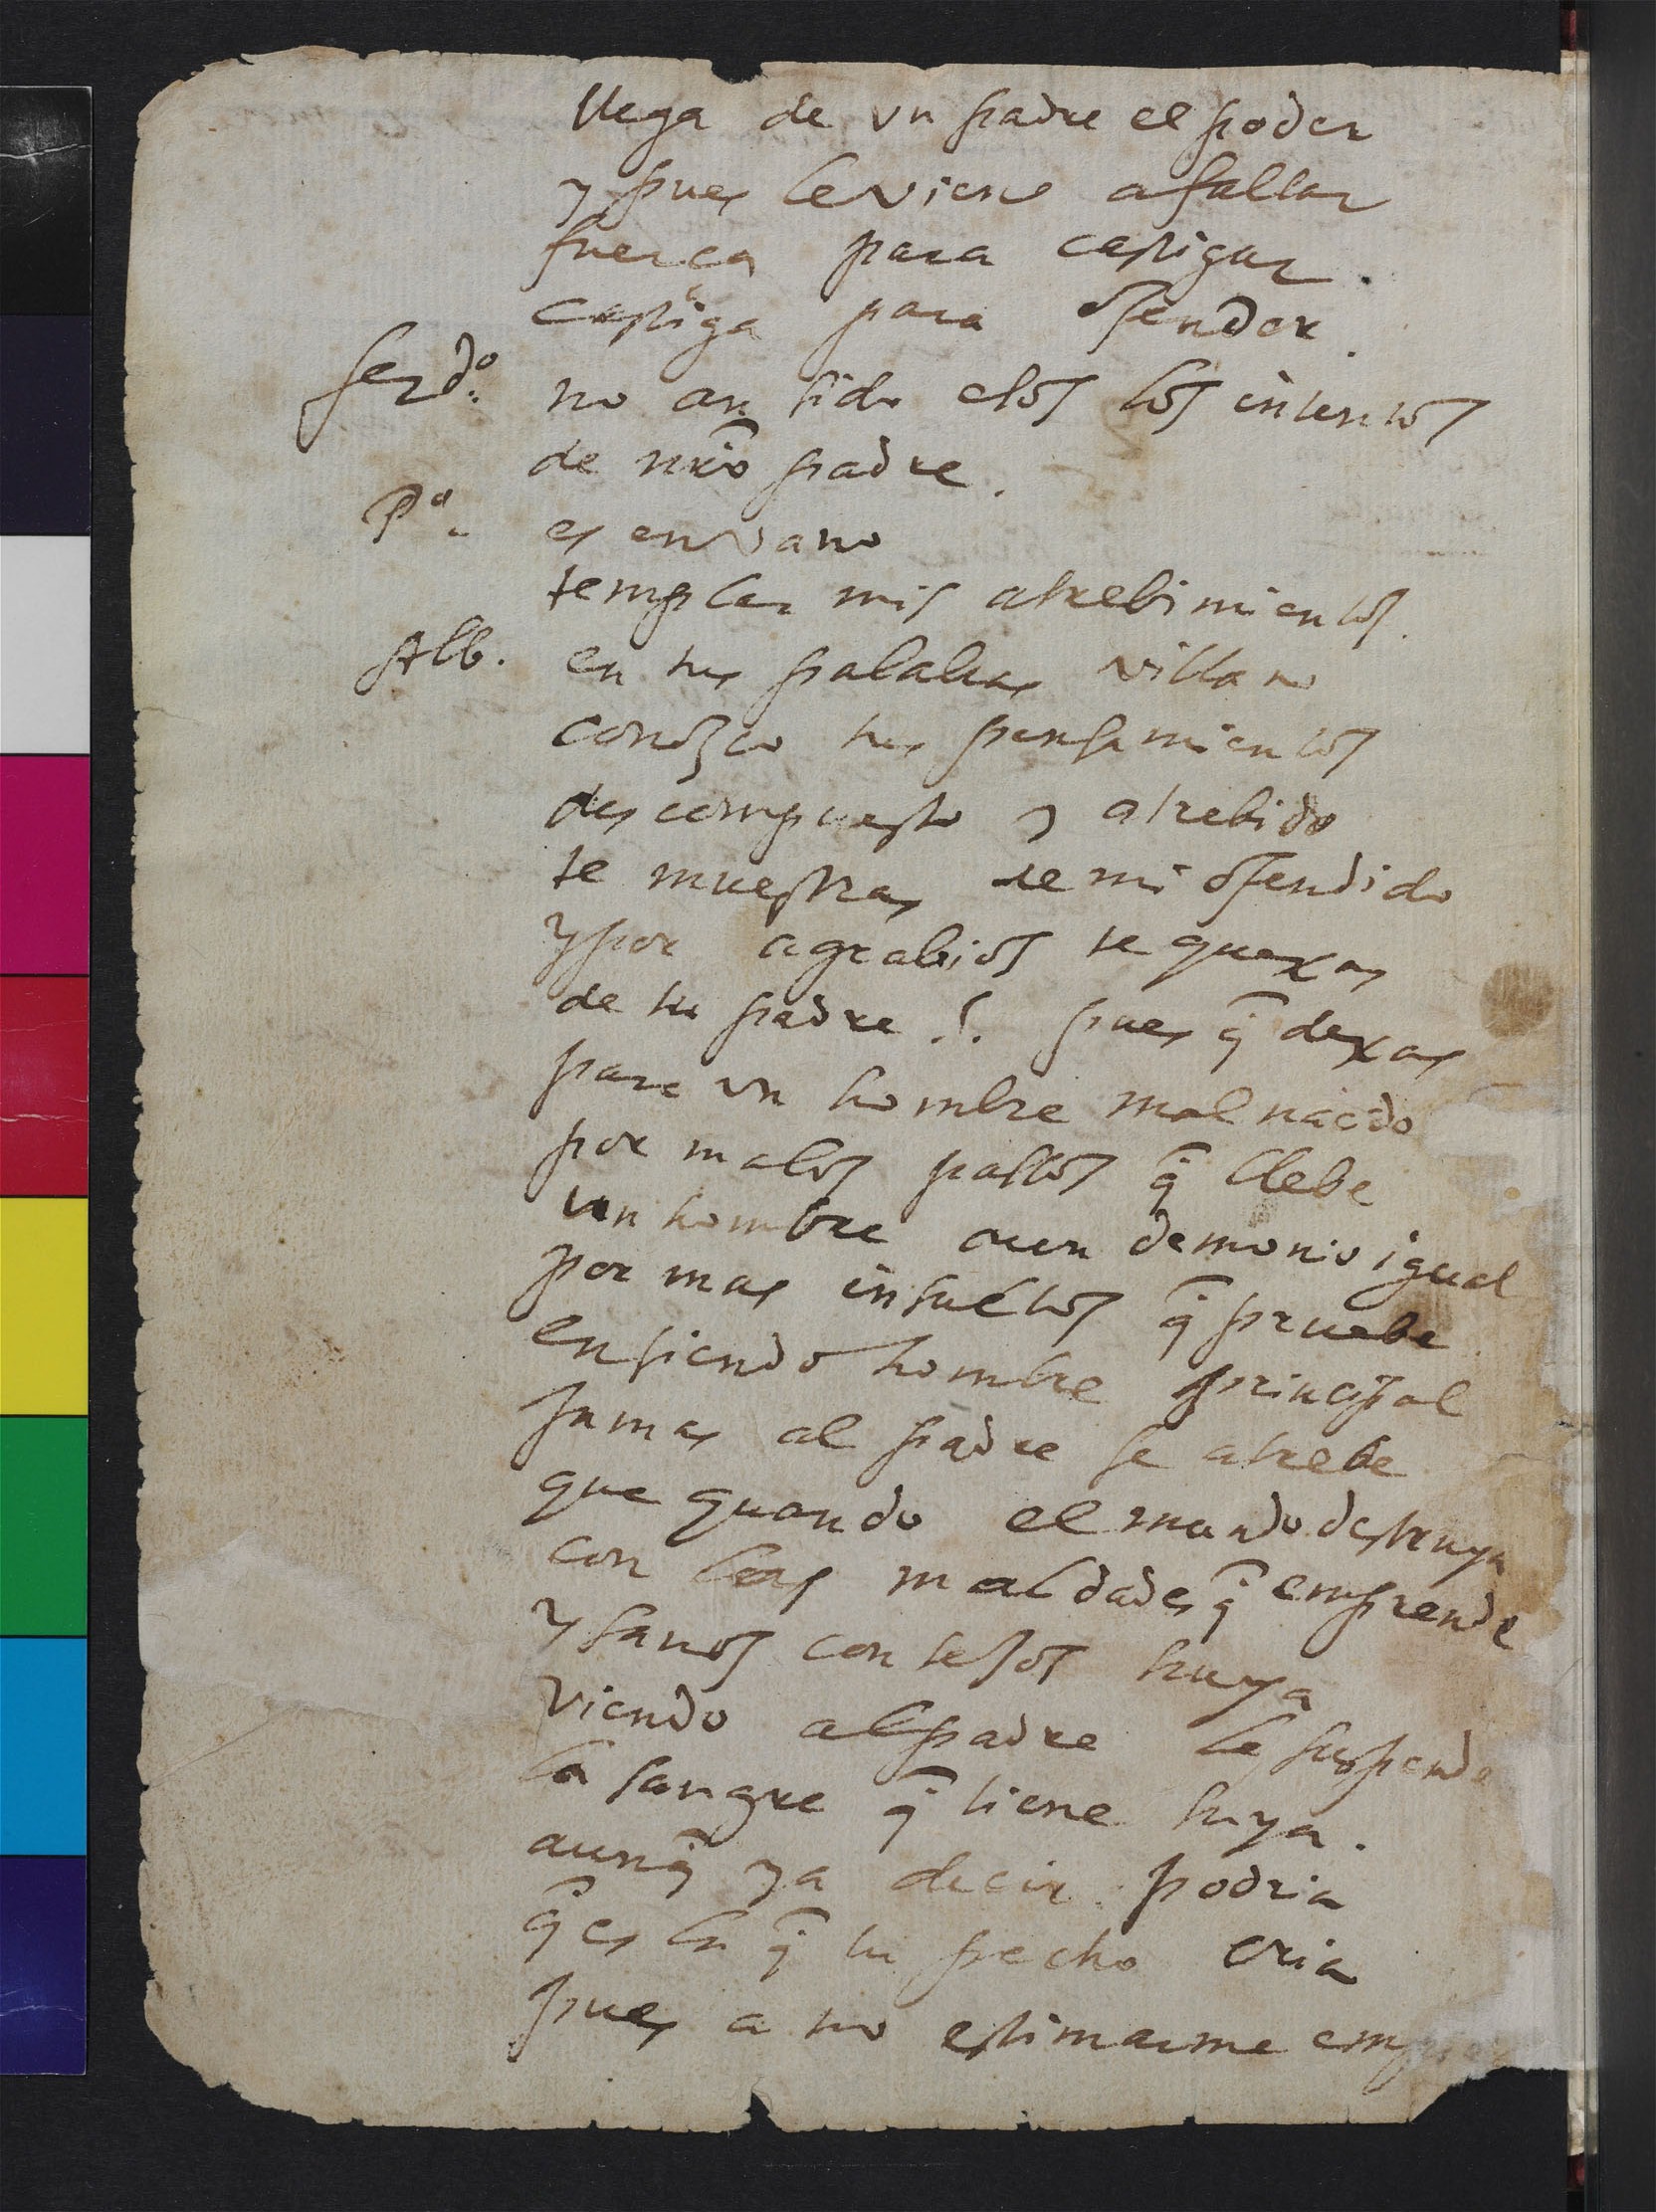 llega de vn padre el poder
y pues le viene a faltar
fuerça para castigar.
castiga para ofender.
ferdo. no an sido esos los intentos
de nr̃o padre.
Po. es en vano
templar mis atrebimientos.
Alb. en tus palabras villano
conozco tus pensamientos
descompuesto y atrebido
te muestras de mi ofendido
y por agrabios te quexas
de tu padre? pues q̃ dexas
para vn hombre mal nacido
por malos passos q̃ llebe
un hombre a un demonio igual
por mas insultos q̃ pruebe
en siendo hombre principal
jamas al padre se atrebe
que quando el mundo destruya
con las maldades q̃ emprende
y sanos consejos huya
viendo al padre le suspende
la sangre q̃ tiene suya.
aunq̃ ya decir podria
q̃ es la q̃ tu pecho cria
pues a no estimarme